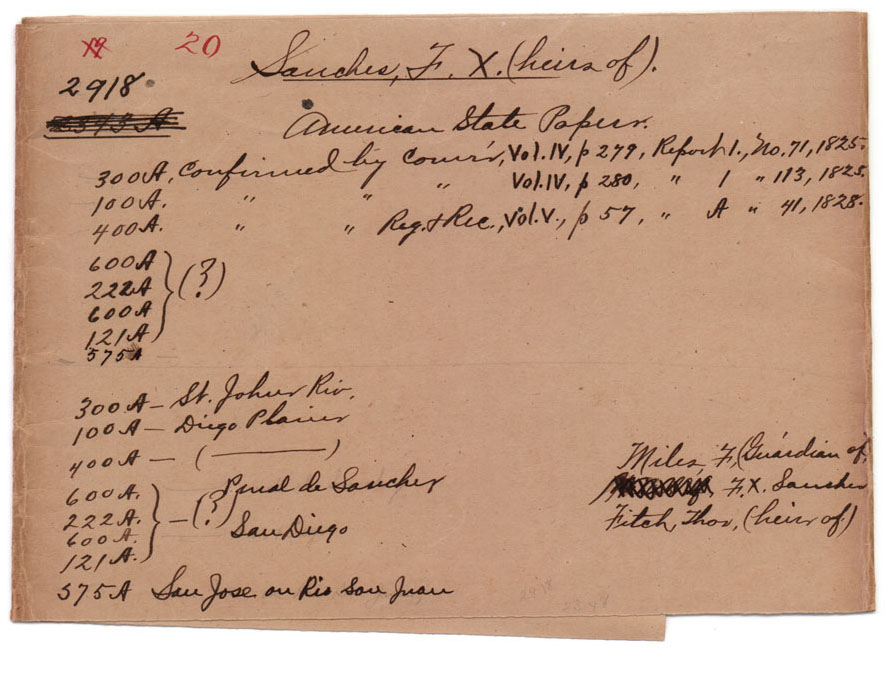 20
Sanches, F. X. (heirs of).
2918
American State Papers.
300A, Confirmed by Com'r, Vol. IV, p 279, Report 1., No. 71, 1825.
100A. " " " Vol. IV, p 280, " 1 " 113, 1825.
400A. " " Reg. & Rec., Vol. V., p 57, " A " 41, 1828.
600A
222A } (?)
600A
121A
575A
300A — St. Johns Riv.
100A — Diego Plains
400A — ( ——— )
600A. Pinal de Sanchez
222A. } — (?) San Diego
600A.
121A.
575A San Jose on Rio San Juan
Miles, F, (Guardian of,
F. X. Sanchez
Fitch, Thos, (heirs of)
2918